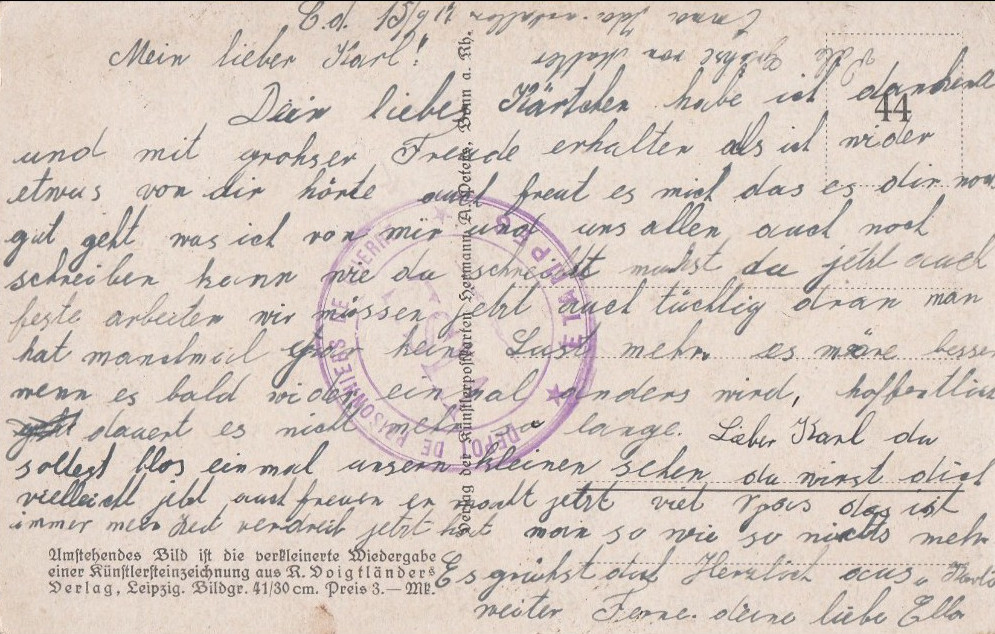 E.d. 15/9 17
Mein lieber Karl!
Dein liebes Kärtchen habe ich dankend
und mit grohser Freude erhalten als ich wider
etwas von dir hörte auch freut es mich das es dir noch
gut geht was ich von mir und uns allen auch noch
schreiben kann wie du schreibst muhst du jetzt auch
feste arbeiten wir müssen jetzt auch tüchtig dran man
hat manchmal gar keine Lust mehr es wäre besser
wenn es bald wider einmal anders wird, hoffentlich
dauert es nicht mehr so lange. Lieber Karl du
soltest blos einmal unsern kleinen sehen du wirst dich
vielleicht jetzt auch freuen er macht jetzt viel Spas das ist
immer mein Zeit vertreib jetzt hat man so wie so nichts mehr
Es grühst dich Herzlich aus
weiter Ferne deine liebe Ella
Viele Grühse von
44
Verlag der Künstlerpostkarten Hermann A. Peters, Bonn a. Rh.
DEPOT DE PRISONNIERS DE GUERRE
ETAMPES
Umstehendes Bild ist die verkleinerte Wiedergabe
einer Künstlersteinzeichnung aus R. Voigtländers
Verlag, Leipzig. Bildgr. 41/30 cm. Preis 3.— Mk.